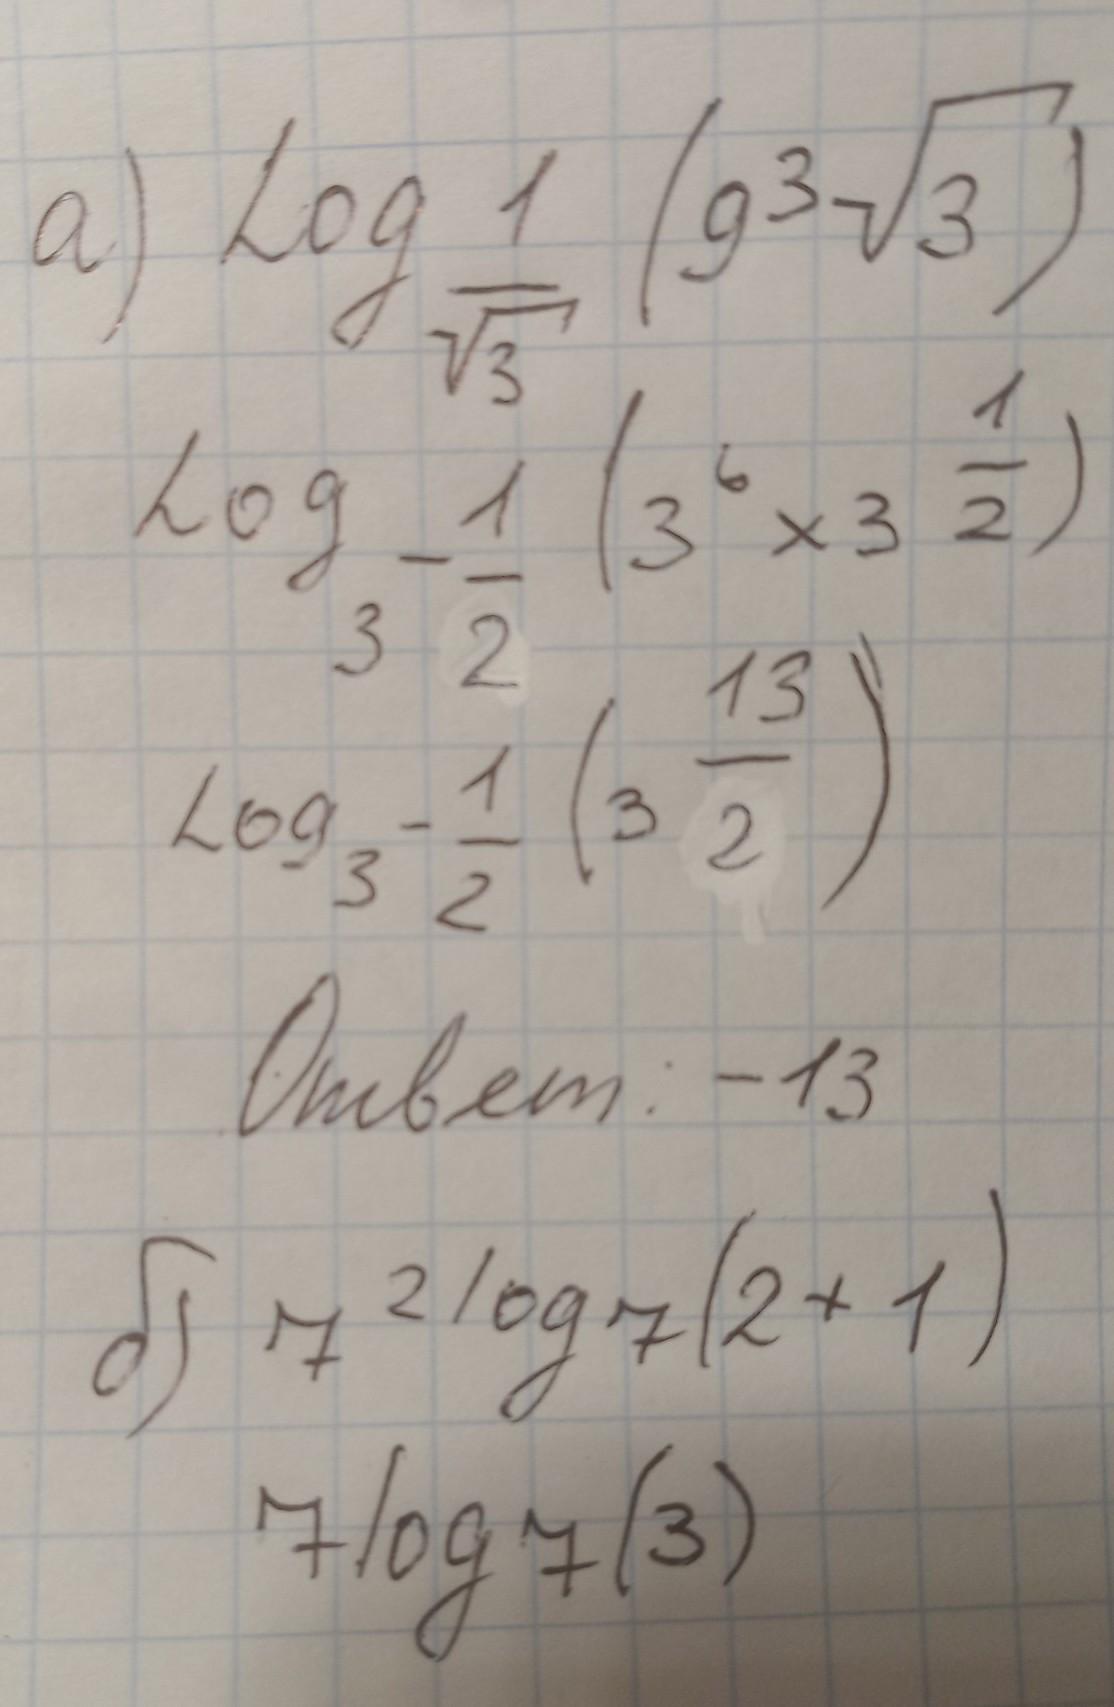 а) Log 1/√3 (9³√3)
Log 3 -1/2 (3⁶ × 3 1/2)
Log 3 -1/2 (3 13/2)
Ответ: -13
б) 7² log 7 (2 + 1)
7 log 7 (3)